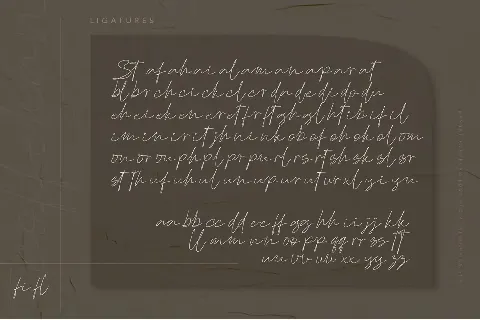 LIGATURES
St af ah ai al am an ap ar at
bl br ch ci ck cl cr da de di do du
eh ei ek en er et fr ft gh gl ht ib if il
im in ir it jh ni nk ob of oh ok ol om
on or ou ph pl pr pu rl rs rt sh sk sl sr
st th uf uh ul un up ur ut ur xl yi yu
aa bb cc dd ee ff gg hh ii jj kk
ll mm nn oo pp qq rr ss tt
uu vv ww xx yy zz
fi fl